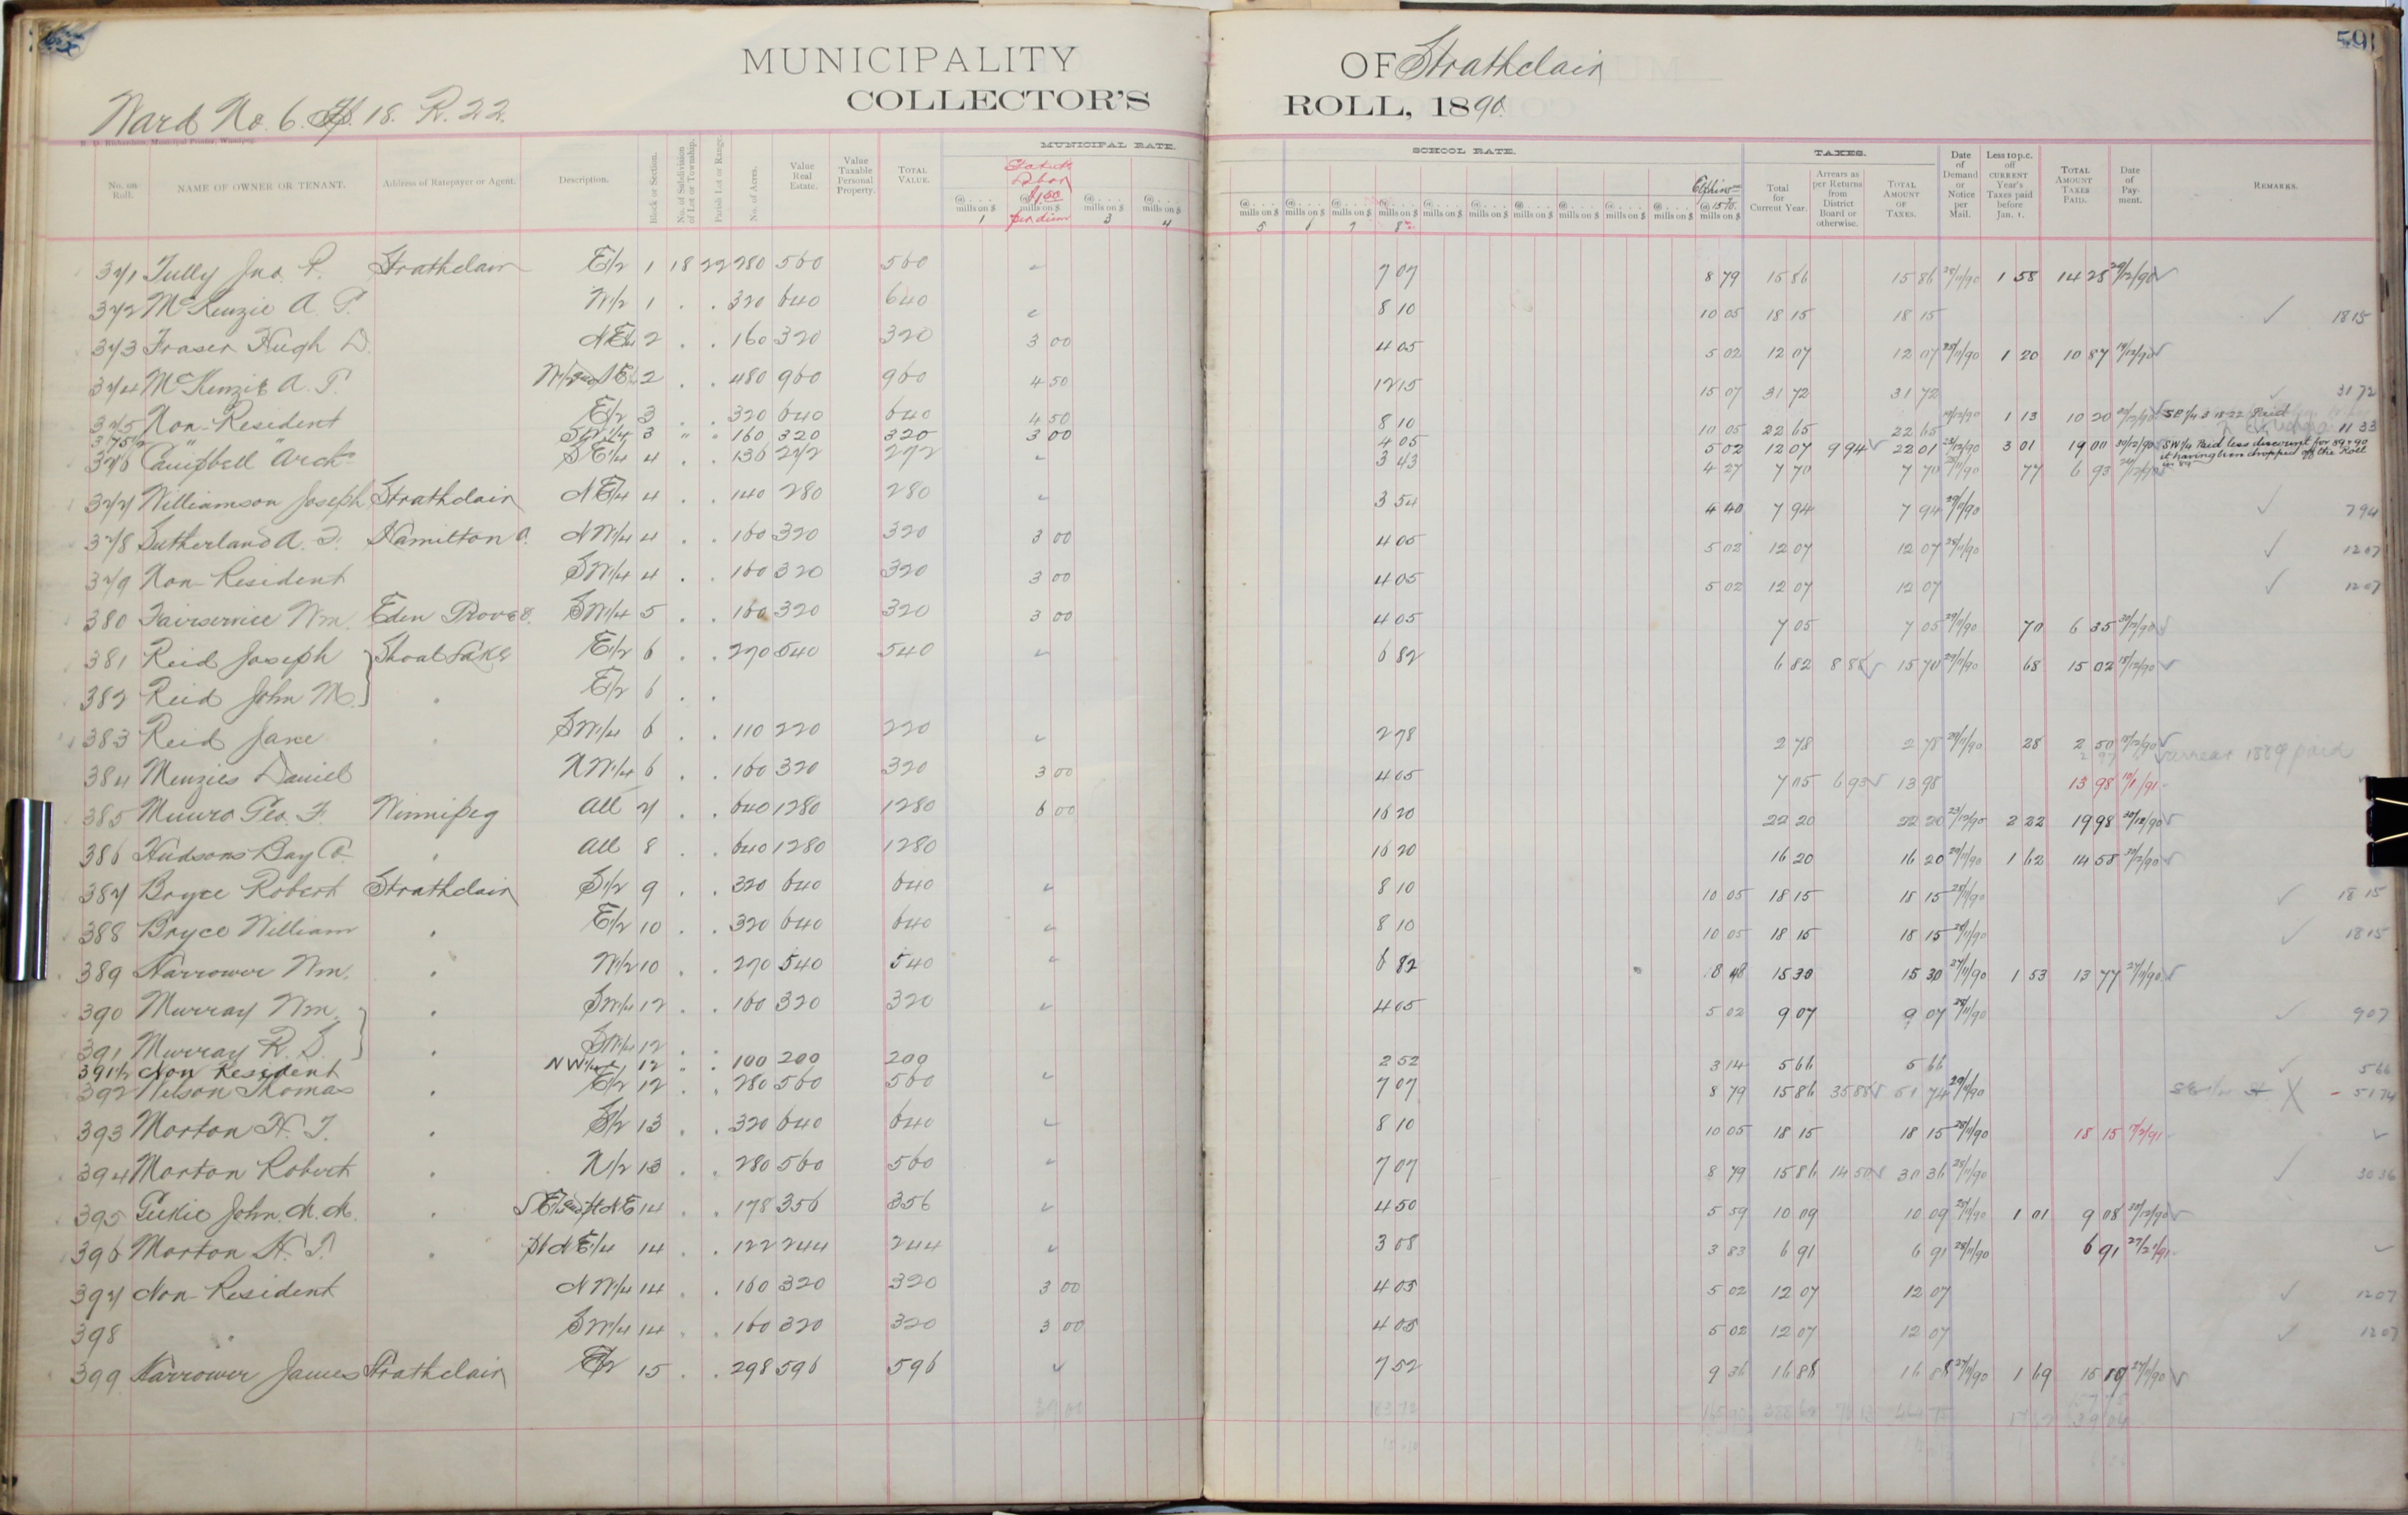 591
MUNICIPALITY OF Strathclair
COLLECTOR'S ROLL, 1890.
Ward No. 6. Tp. 18. R. 22.
R. D. Richardson, Municipal Printer, Winnipeg.
MUNICIPAL RATE. SCHOOL RATE. TAXES.
No. on Roll. NAME OF OWNER OR TENANT. Address of Ratepayer or Agent. Description. Block or Section. No. of Subdivision of Lot or Township. Parish Lot or Range. No. of Acres. Value Real Estate. Value Taxable Personal Property. TOTAL VALUE. @ .... mills on $ 1 Statute Labor $1.50 per diem @ .... mills on $ 3 @ .... mills on $ 4 @ .... mills on $ 5 @ .... mills on $ 6 @ .... mills on $ 7 @ .... mills on $ 8 @ 15 7/10 mills on $ Total for Current Year. Arrears as per Returns from District Board or otherwise. TOTAL AMOUNT OF TAXES. Date of Demand or Notice per Mail. Less 10 p.c. off CURRENT Year's Taxes paid before Jan. 1. TOTAL AMOUNT TAXES PAID. Date of Payment. REMARKS.
371 Tully Jno. R. Strathclair E1/2 1 18 22 280 560 560 ✓ 7 07 8 79 15 86 15 86 28/11/90 1 58 14 28 29/12/90 ✓
372 McKenzie A. T. W1/2 1 . . 320 640 640 ✓ 8 10 10 05 18 15 18 15 ✓ 18 15
373 Fraser Hugh D. NE1/4 2 . . 160 320 320 3 00 4 05 5 02 12 07 12 07 28/11/90 1 20 10 87 19/12/90 ✓
374 McKenzie A. T. W1/2 and SE1/4 2 . . 480 960 960 4 50 12 15 15 07 31 72 31 72 ✓ 31 72
375 Non-Resident E1/2 3 . . 320 640 640 4 50 8 10 10 05 22 65 22 65 1 13 10 20 SE 1/4 3 18-22 Paid 11 33
375 1/2 " " SW 1/4 3 " " 160 320 320 3 00 4 05 5 02 12 07 9 94 ✓ 22 01 23/12/90 3 01 19 00 30/12/90 SW 1/4 Paid less discount for 89 & 90 it having been dropped off the Roll in 89
376 Campbell Arch. SE1/4 4 . . 136 272 272 ✓ 3 43 4 27 7 70 7 70 28/11/90 77 6 93
377 Williamson Joseph Strathclair NE1/4 4 . . 140 280 280 ✓ 3 54 4 40 7 94 7 94 29/11/90 ✓ 7 94
378 Sutherland A. F. Hamilton O. NW1/4 4 . . 160 320 320 3 00 4 05 5 02 12 07 12 07 28/11/90 ✓ 12 07
379 Non-Resident SW1/4 4 . . 160 320 320 3 00 4 05 5 02 12 07 12 07 ✓ 12 07
380 Fairservice Wm. Eden Grove O. SW1/4 5 . . 160 320 320 3 00 4 05 7 05 7 05 29/11/90 70 6 35 30/12/90 ✓
381 Reid Joseph } Shoal Lake E1/2 6 . . 270 540 540 ✓ 6 82 6 82 8 88 ✓ 15 70 29/11/90 68 15 02 18/12/90 ✓
382 Reid John M. } " E1/2 6 . .
383 Reid Jane " SW1/4 6 . . 110 220 220 ✓ 2 78 2 78 2 78 29/11/90 28 2 50 18/12/90 ✓
384 Menzies Daniel NW1/4 6 . . 160 320 320 3 00 4 05 7 05 6 93 ✓ 13 98 13 98 10/1/91 arrears 1889 paid
385 Munro Geo. F. Winnipeg All 7 . . 640 1280 1280 6 00 16 20 22 20 22 20 23/12/90 2 22 19 98 30/12/90 ✓
386 Hudsons Bay Co. " All 8 . . 640 1280 1280 16 20 16 20 16 20 29/11/90 1 62 14 58 30/12/90 ✓
387 Bryce Robert Strathclair S1/2 9 . . 320 640 640 ✓ 8 10 10 05 18 15 18 15 28/11/90 ✓ 18 15
388 Bryce William " E1/2 10 . . 320 640 640 ✓ 8 10 10 05 18 15 18 15 28/11/90 ✓ 18 15
389 Harrower Wm. " W1/2 10 . . 270 540 540 ✓ 6 82 8 48 15 30 15 30 27/11/90 1 53 13 77 27/11/90 ✓
390 Murray Wm. } " SW1/4 12 . . 160 320 320 ✓ 4 05 5 02 9 07 9 07 28/11/90 ✓ 9 07
391 Murray R. S. } " SW1/4 12 . .
391 1/2 Non Resident NW1/4 12 " . 100 200 200 2 52 3 14 5 66 5 66 ✓ 5 66
392 Wilson Thomas " E1/2 12 . . 280 560 560 ✓ 7 07 8 79 15 86 35 88 ✓ 51 74 29/11/90 X - 51 74
393 Morton H. T. " S1/2 13 . . 320 640 640 ✓ 8 10 10 05 18 15 18 15 28/11/90 18 15 17/2/91 ✓
394 Morton Robert " N1/2 13 . . 280 560 560 ✓ 7 07 8 79 15 86 14 50 ✓ 30 36 28/11/90 ✓ 30 36
395 Geekie John M. M. " SE1/4 and pt NE 14 . . 178 356 356 ✓ 4 50 5 59 10 09 10 09 28/11/90 1 01 9 08 30/12/90 ✓
396 Morton H. T. " pt NE1/4 14 . . 122 244 244 ✓ 3 08 3 83 6 91 6 91 28/11/90 6 91 27/2/91 ✓
397 Non-Resident NW1/4 14 . . 160 320 320 3 00 4 05 5 02 12 07 12 07 ✓ 12 07
398 " SW1/4 14 . . 160 320 320 3 00 4 05 5 02 12 07 12 07 ✓ 12 07
399 Harrower James Strathclair E1/2 15 . . 298 596 596 ✓ 7 52 9 36 16 88 16 88 27/11/90 1 69 15 19 27/11/90 ✓